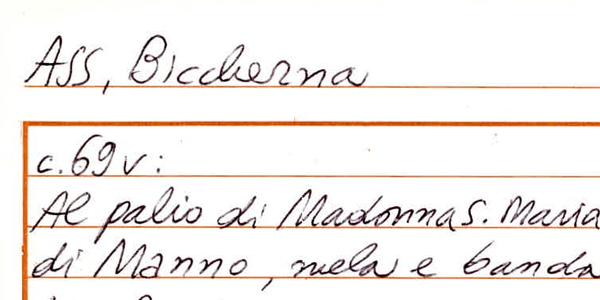 Ass, Biccherna
c. 69 v:
Al palio di Madonna S. Maria
di Manno, mela e banda